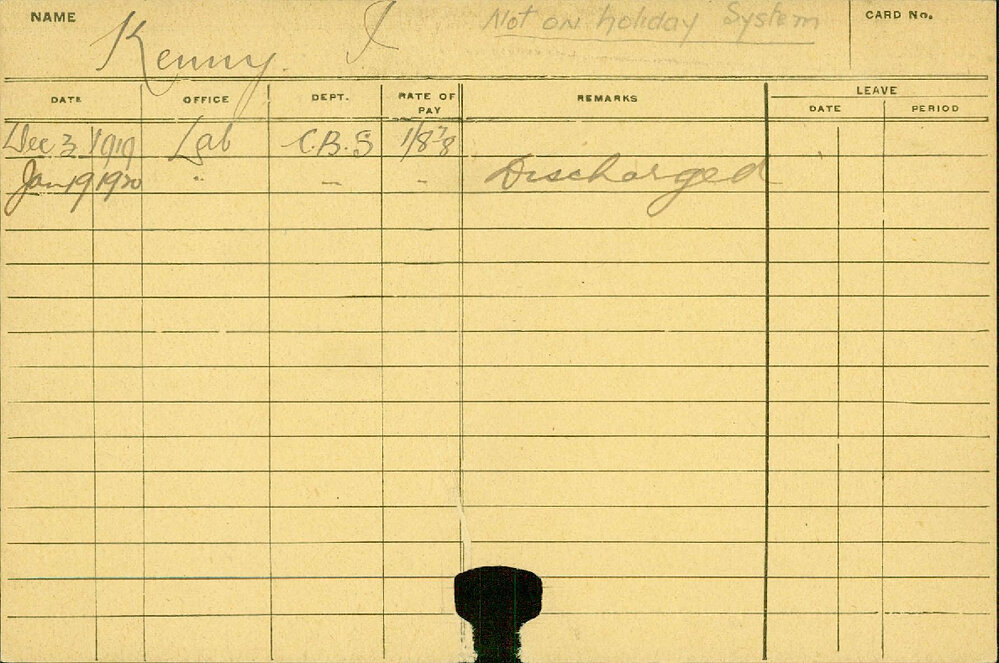 NAME Kenny. J Not on holiday System CARD No.
DATE OFFICE DEPT. RATE OF PAY REMARKS LEAVE
DATE PERIOD
Dec 3 1919 Lab C.B.S 1/8 7/8
Jan 19 1920 " – – Discharged